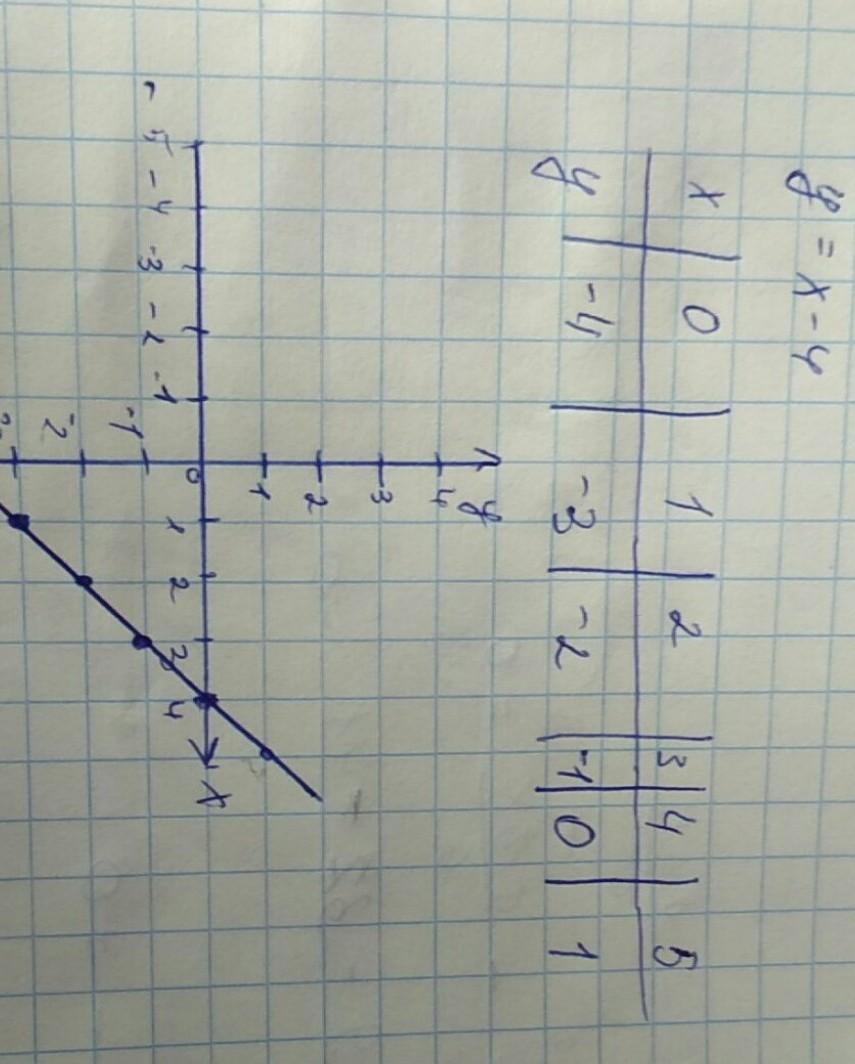 y = x - 4
x | 0 | 1 | 2 | 3 | 4 | 5
y | -4 | -3 | -2 | -1 | 0 | 1
y
4
3
2
1
-5 -4 -3 -2 -1 0 1 2 3 4 x
-1
-2